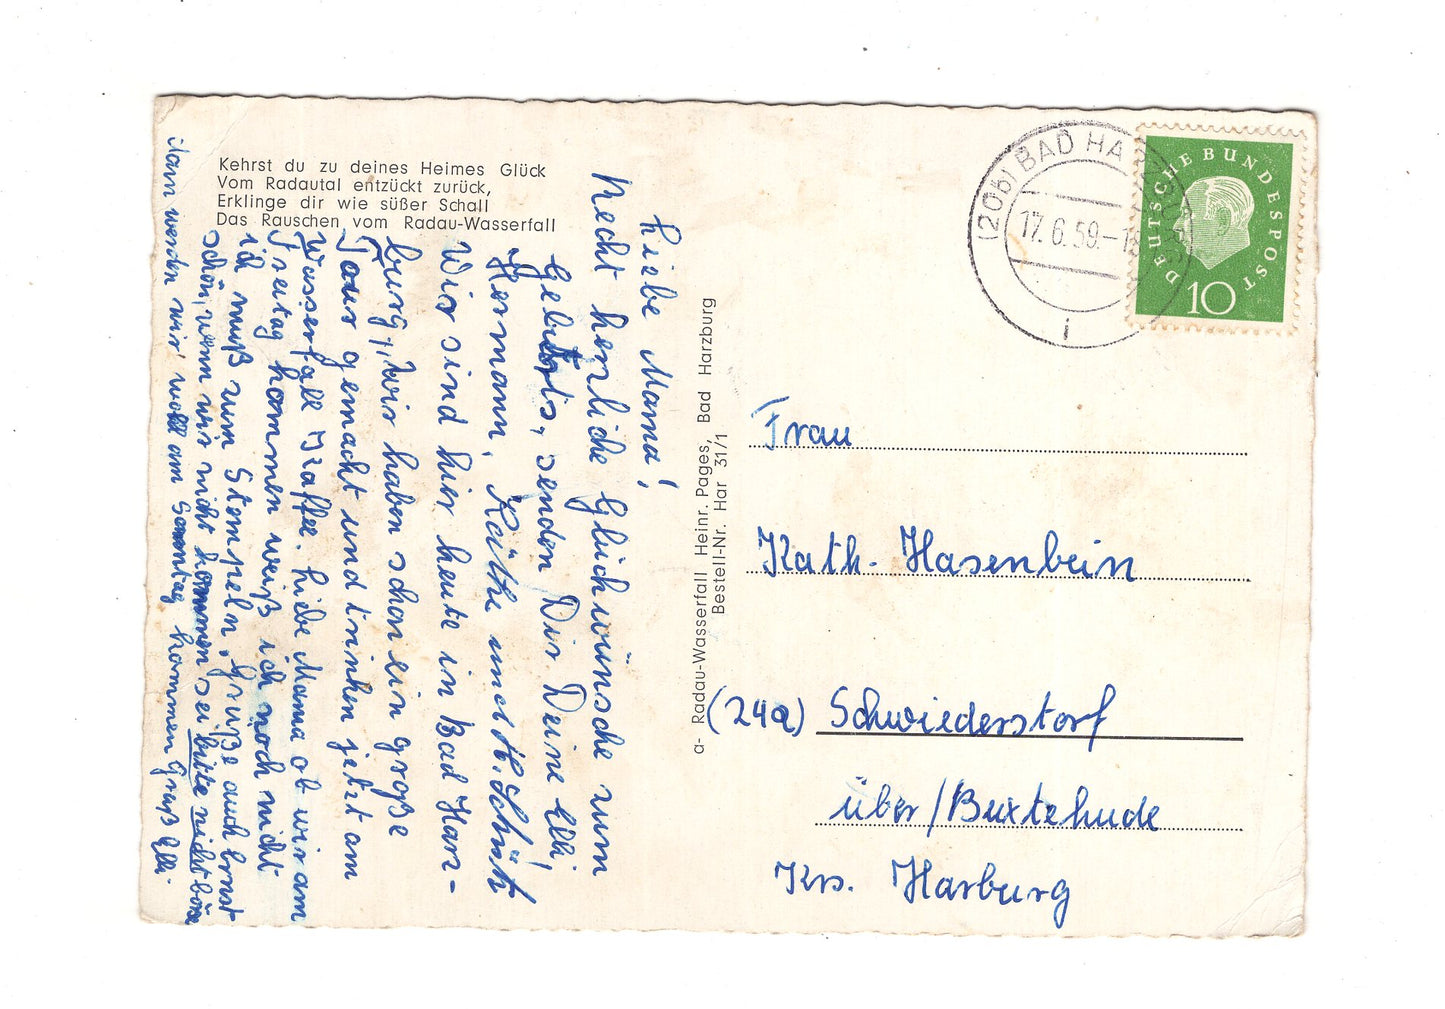 Kehrst du zu deines Heimes Glück
Vom Radautal entzückt zurück,
Erklinge dir wie süßer Schall
Das Rauschen vom Radau-Wasserfall
Liebe Mama!
Recht herzliche Glückwünsche zum
Geburts, senden Dir Deine Elli,
Hermann, Käthe und H. Schütt
Wir sind hier heute in Bad Harz-
burg, wir haben schon ein große
Tour gemacht und trinken jetzt am
Wasserfall Kaffee. Liebe Mama ob wir am
Freitag kommen weiß ich noch nicht
ich muß zum Stempeln. Grüße auch Ernst
schön, wenn wir nicht kommen sei bitte nicht böse
dann werden wir wohl am Sonntag kommen Gruß Elli
a- Radau-Wasserfall Heinr. Pages, Bad Harzburg
Bestell-Nr. Har 31/1
(20b) BAD HARZBURG
17.6.59.-18
i
DEUTSCHE BUNDESPOST
10
Frau
Kath. Hasenbein
(24a) Schwiederstorf
über/Buxtehude
Krs. Harburg